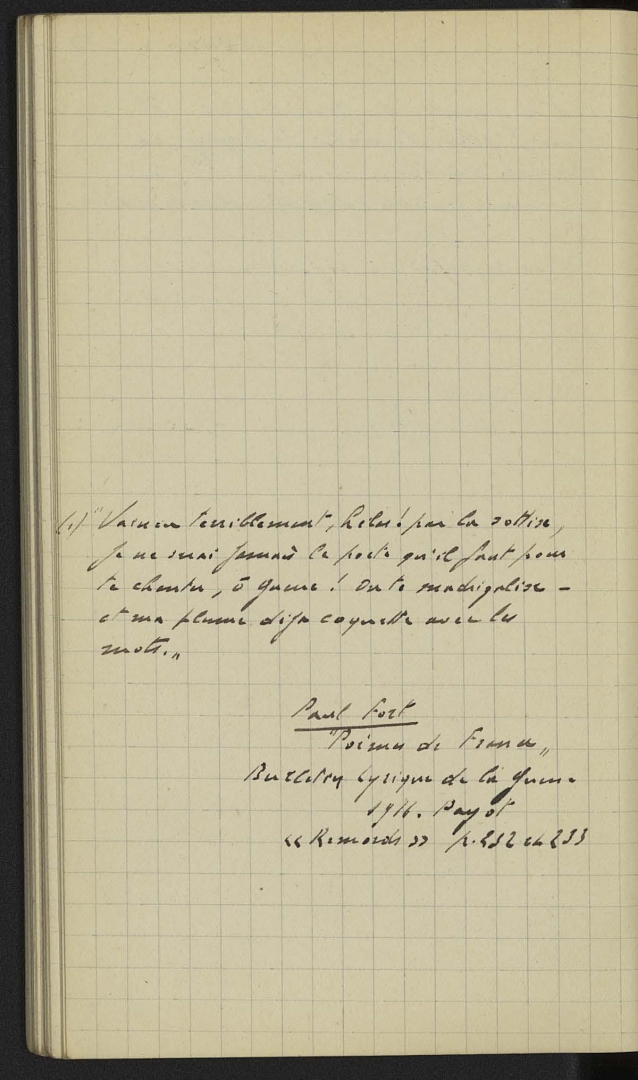 (1) "Vaincu terriblement, hélas! par la sottise,
je ne serai jamais le poète qu'il faut pour
te chanter, ô guerre! On te madrigalise –
et ma plume déjà coquette avec les
mots.„
Paul Fort
"Poèmes de France„
Bulletin Lyrique de la Guerre
1916. Payot
«Remords» p. 232 et 233